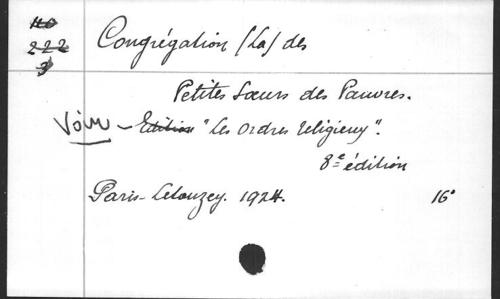 40
222
3
Congrégation (La) des
Petites Sœurs des Pauvres.
Voir – Edition "Les Ordres religieux".
8e édition
Paris – Letouzey. 1924. 16°